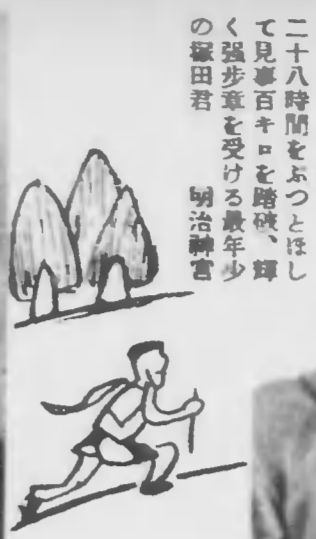 二十八時間をぶつとほし
て見事百キロを踏破、輝
く强歩章を受ける最年少
の塚田君　明治神宮